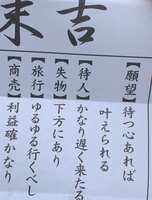 末吉
【願望】待つ心あれば
叶えられる
【待人】かなり遅く来たる
【失物】下方にあり
【旅行】ゆるゆる行くべし
【商売】利益確かなり